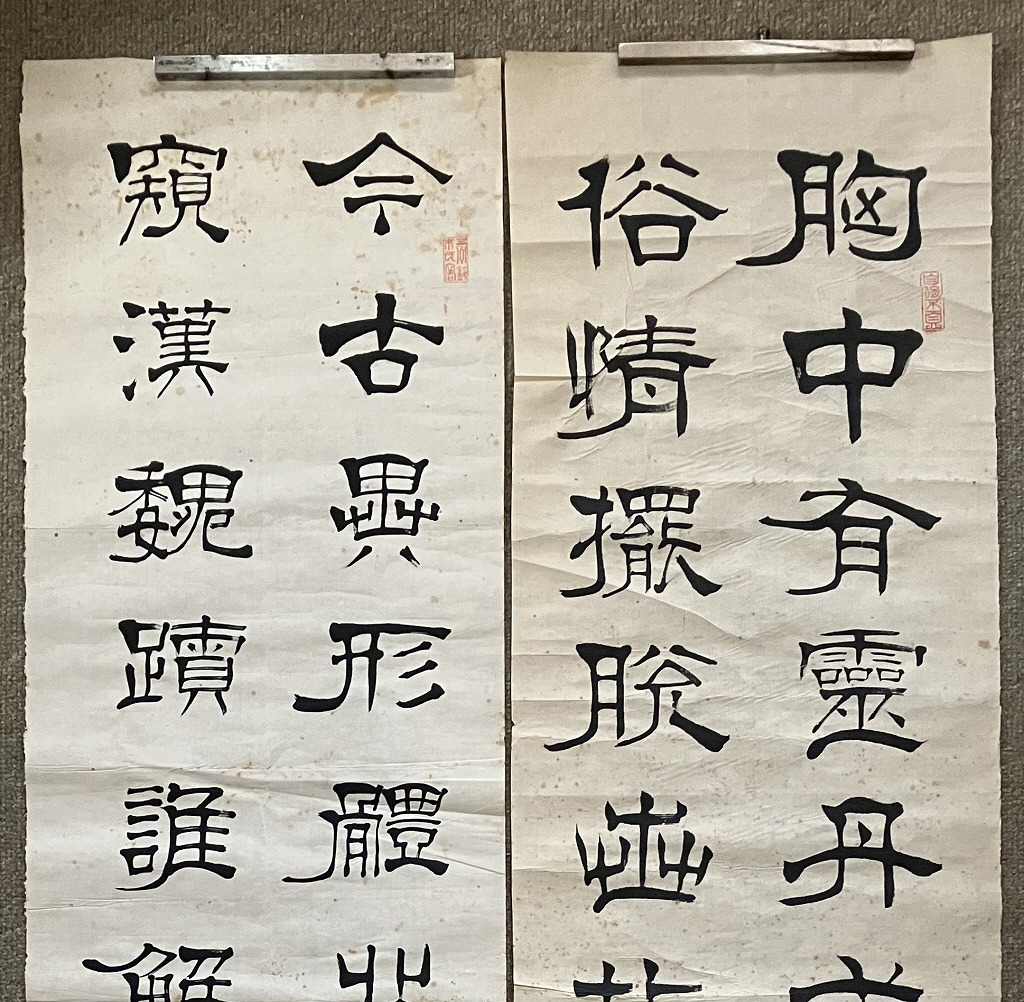 胸中有靈丹
俗情擺脫
今古異形體
窺漢魏蹟誰解